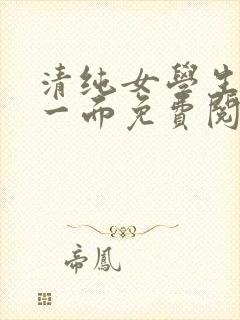 清纯女學生
一而免費閱
帝鳳